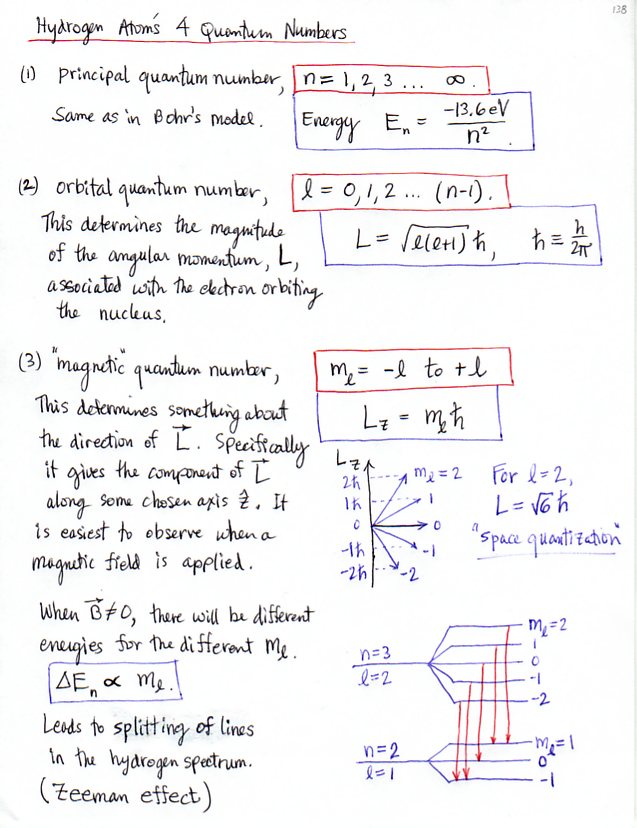 138
Hydrogen Atom's 4 Quantum Numbers
(1) principal quantum number, n = 1, 2, 3 ... ∞.
Same as in Bohr's model. Energy Eₙ = -13.6eV / n².
(2) orbital quantum number, ℓ = 0, 1, 2 ... (n-1).
This determines the magnitude
of the angular momentum, L, L = √ℓ(ℓ+1) ħ, ħ ≡ h/2π
associated with the electron orbiting
the nucleus.
(3) "magnetic" quantum number, mℓ = -ℓ to +ℓ
This determines something about
the direction of L⃗. Specifically
L_z = mℓħ
it gives the component of L⃗
along some chosen axis ẑ. It
is easiest to observe when a
magnetic field is applied.
L_z
2ħ mℓ = 2
1ħ 1
0 0
-1ħ -1
-2ħ -2
For ℓ = 2,
L = √6 ħ
"space quantization"
When B⃗ ≠ 0, there will be different
energies for the different mℓ.
ΔEₙ ∝ mℓ.
Leads to splitting of lines
in the hydrogen spectrum.
(Zeeman effect)
n=3
ℓ=2
mℓ=2
1
0
-1
-2
n=2
ℓ=1
mℓ=1
0
-1